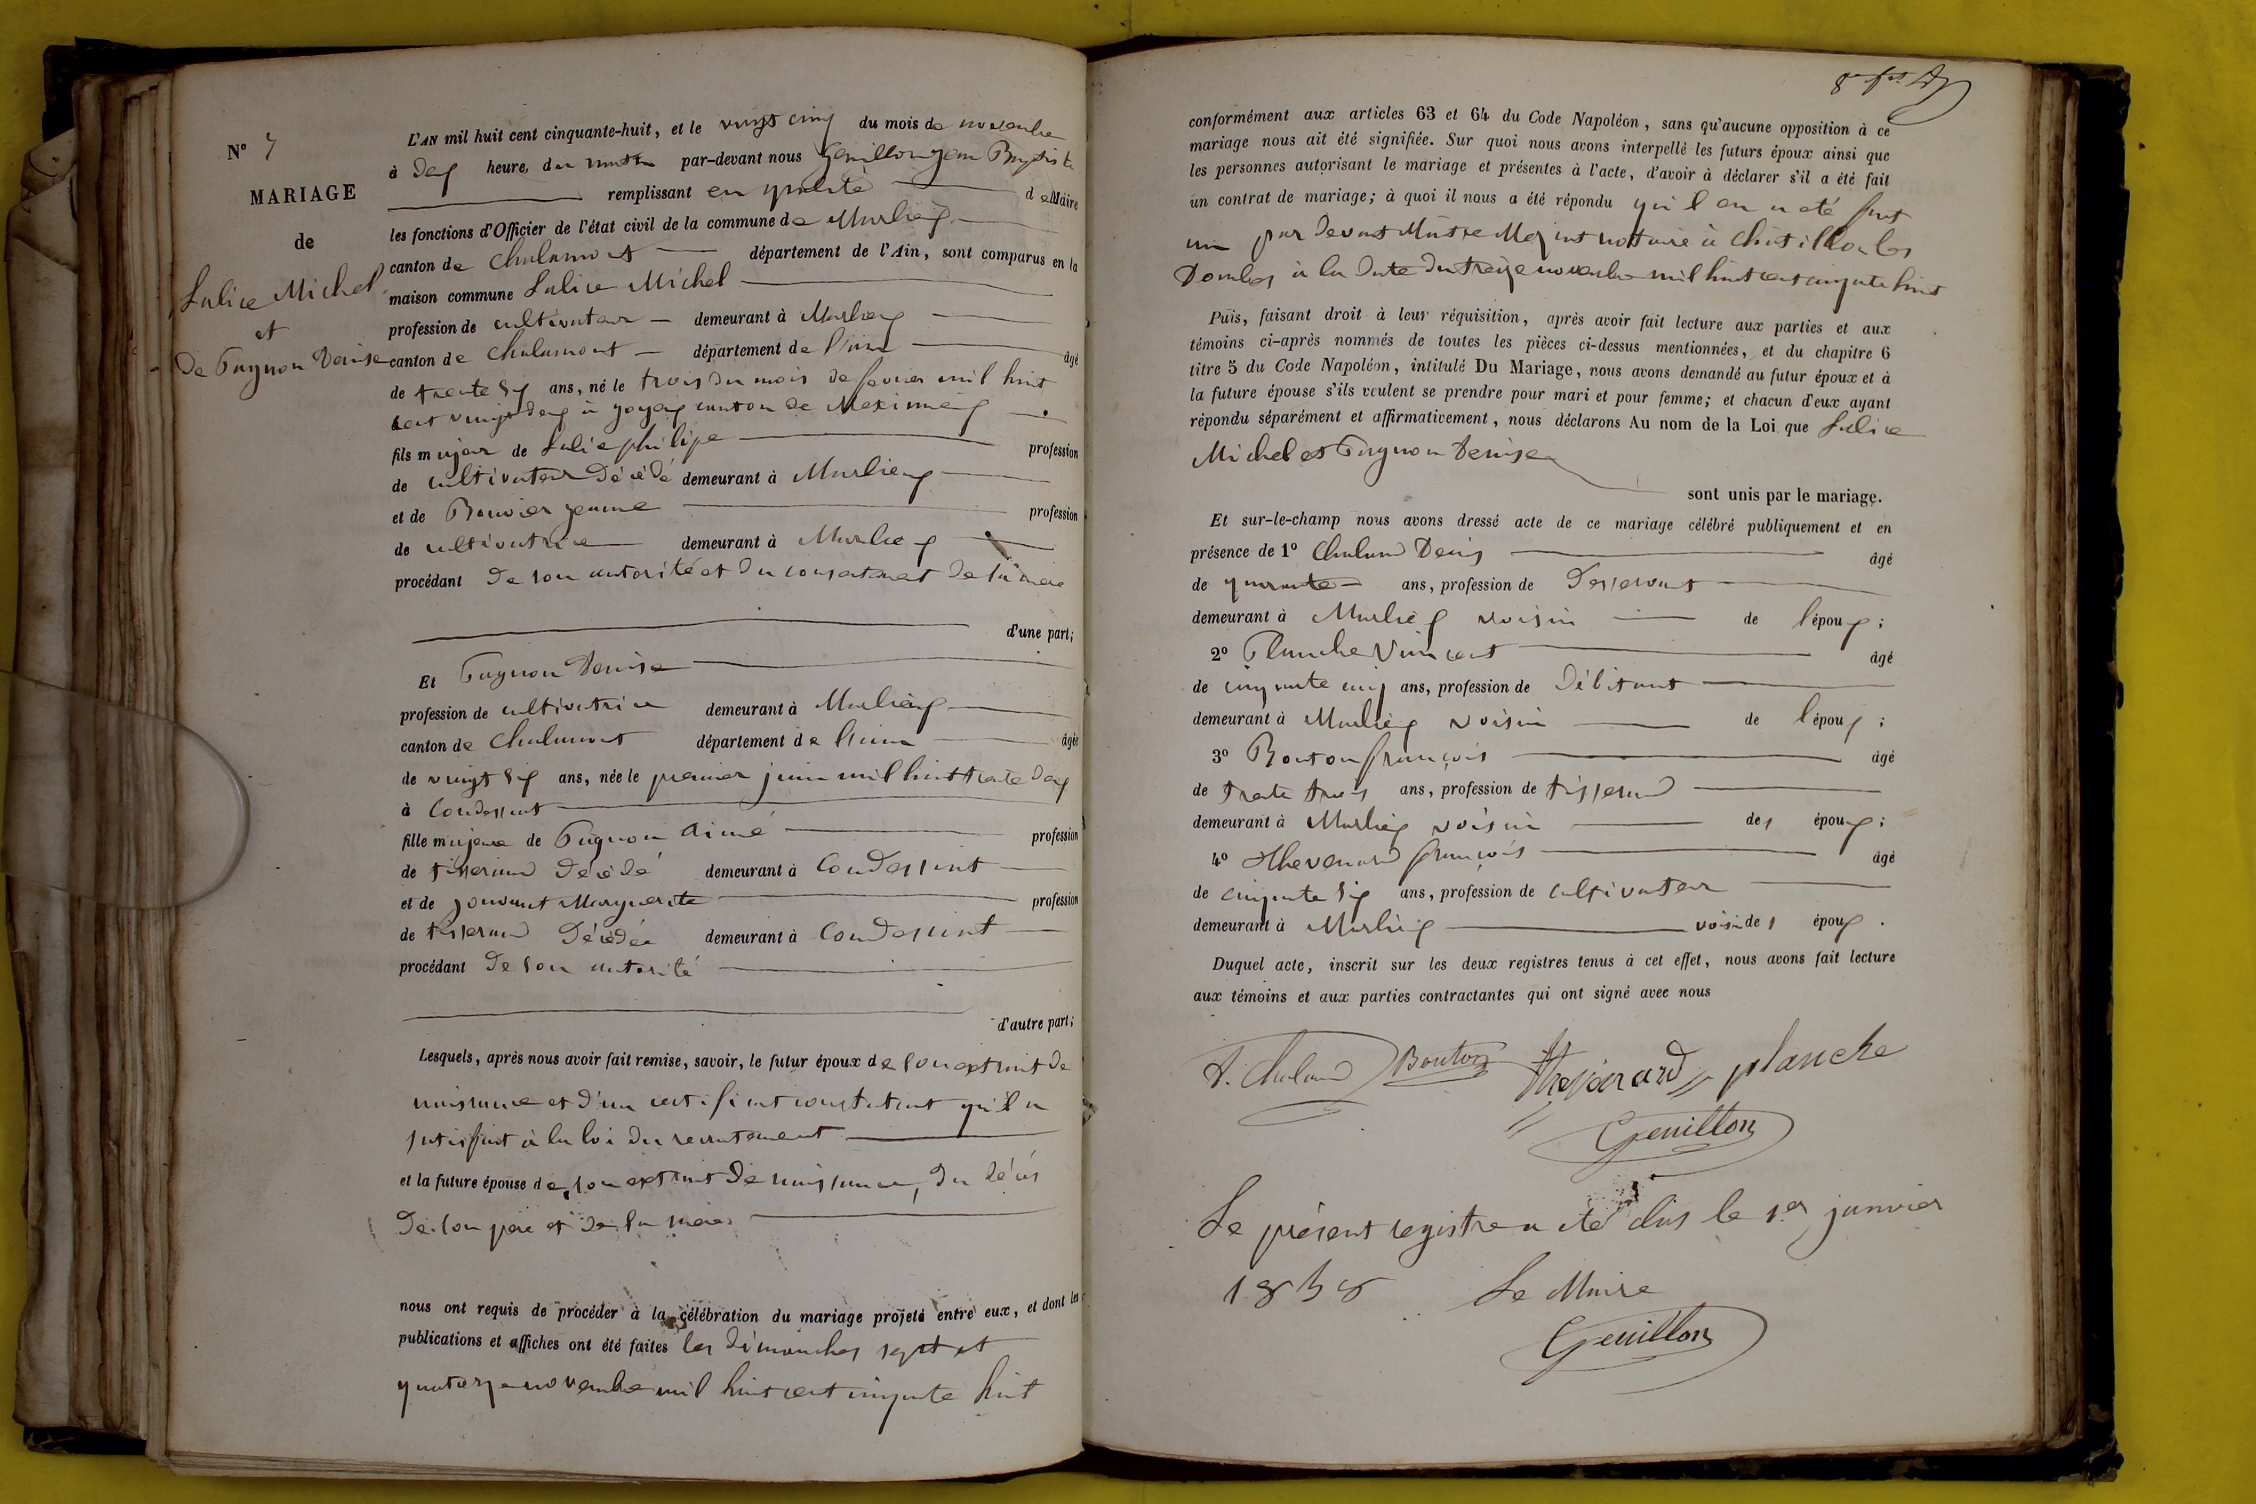 N° 7
MARIAGE
de
Salice Michel
et
de Pugnon Denise
L'AN mil huit cent cinquante-huit, et le vingt cinq du mois de novembre
à dix heure, du matin par-devant nous Genillon Jean Baptiste
remplissant en qualité de Maire
les fonctions d'Officier de l'état civil de la commune de Marlieux
canton de Chalamont département de l'Ain, sont comparus en la
maison commune Salice Michel
profession de cultivateur demeurant à Marlieux
canton de Chalamont département de l'ain âgé
de trente six ans, né le trois du mois de fevrier mil huit
cent vingt deux à joyeux canton de Meximieux
fils majeur de Salice philipe profession
de cultivateur décédé demeurant à Marlieux
et de Bouvier jeanne profession
de cultivatrice demeurant à Marlieux
procédant de son autorité et du consentement de sa mere
d'une part;
Et Pugnon Denise
profession de cultivatrice demeurant à Marlieux
canton de Chalamont département de l'ain âgée
de vingt six ans, née le premier juin mil huit trente deux
à Condessiat
fille majeure de Pugnon Aimé profession
de tisserand décédé demeurant à Condessiat
et de Marguerite profession
de tisserand décédée demeurant à Condessiat
procédant de son autorité
d'autre part;
Lesquels, après nous avoir fait remise, savoir, le futur époux de son extrait de
naissance et d'un certificat constatant qu'il a
satisfait à la loi du recrutement
et la future épouse de son extrait de naissance, du décès
de son père et de sa mère
nous ont requis de procéder à la célébration du mariage projeté entre eux, et dont les
publications et affiches ont été faites les dimanches sept et
quatorze novembre mil huit cent cinquante huit
conformément aux articles 63 et 64 du Code Napoléon, sans qu'aucune opposition à ce
mariage nous ait été signifiée. Sur quoi nous avons interpellé les futurs époux ainsi que
les personnes autorisant le mariage et présentes à l'acte, d'avoir à déclarer s'il a été fait
un contrat de mariage; à quoi il nous a été répondu qu'il en a été fait
un par devant Maitre notaire à Chatillon les
Dombes à la date du treize novembre mil huit cent cinquante huit
Puis, faisant droit à leur réquisition, après avoir fait lecture aux parties et aux
témoins ci-après nommés de toutes les pièces ci-dessus mentionnées, et du chapitre 6
titre 5 du Code Napoléon, intitulé Du Mariage, nous avons demandé au futur époux et à
la future épouse s'ils veulent se prendre pour mari et pour femme; et chacun d'eux ayant
répondu séparément et affirmativement, nous déclarons Au nom de la Loi que Salice
Michel et Pugnon Denise
sont unis par le mariage.
Et sur-le-champ nous avons dressé acte de ce mariage célébré publiquement et en
présence de 1° Chaland Denis âgé
de quarante ans, profession de Desservant
demeurant à Marlieux voisin de l'époux;
2° Planche Vincent âgé
de cinquante cinq ans, profession de Débitant
demeurant à Marlieux voisin de l'époux;
3° Bouton françois âgé
de trente trois ans, profession de tisserand
demeurant à Marlieux voisin des époux;
4° Thevenard françois âgé
de cinquante six ans, profession de cultivateur
demeurant à Marlieux voisin des époux.
Duquel acte, inscrit sur les deux registres tenus à cet effet, nous avons fait lecture
aux témoins et aux parties contractantes qui ont signé avec nous
D. Chaland Bouton Thevenard planche
Genillon
Le présent registre a été clos le 1er janvier
Le Maire
Genillon